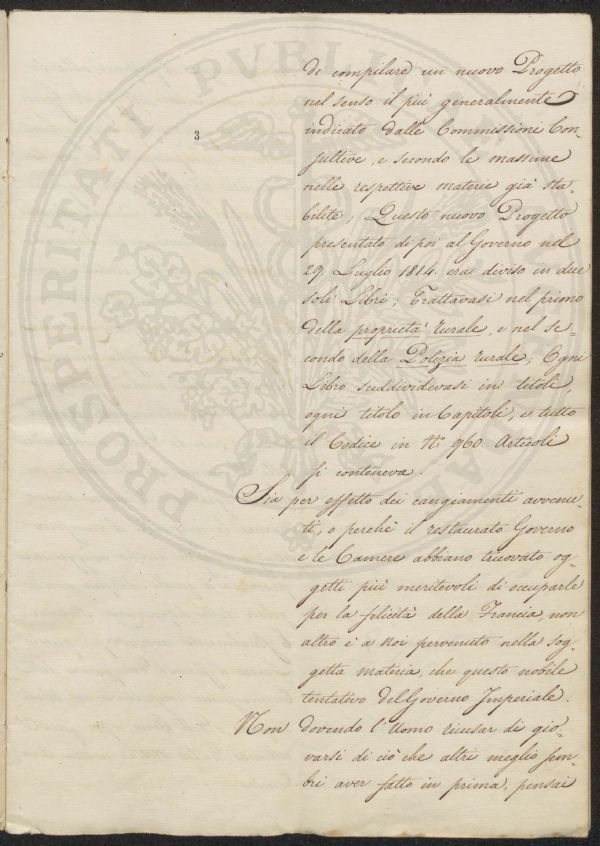 3
di compilare un nuovo Progetto
nel senso il più generalmente
indicato dalle Commissioni Con-
sultive, e secondo le massime
nelle respettive materie già sta-
bilite; Questo nuovo Progetto
presentato di poi al Governo nel
29. Luglio 1814. era diviso in due
soli Libri; Trattavasi nel primo
della proprietà rurale, e nel se-
condo della Polizia rurale; Ogni
Libro suddividevasi in titoli,
ogni titolo in Capitoli, e tutto
il Codice in N.° 960. Articoli
si conteneva.
Sia per effetto dei cangiamenti avvenu-
ti, o perchè il restaurato Governo
e le Camere abbiano truovato og-
getti più meritevoli di occuparle
per la felicità della Francia, non
altro è a noi pervenuto nella sog-
getta materia, che questo nobile
tentativo del Governo Imperiale.
Non dovendo l'Uomo ricusar di gio-
varsi di ciò che altri meglio sem-
bri aver fatto in prima, pensai
PROSPERITATI PVBLICAE